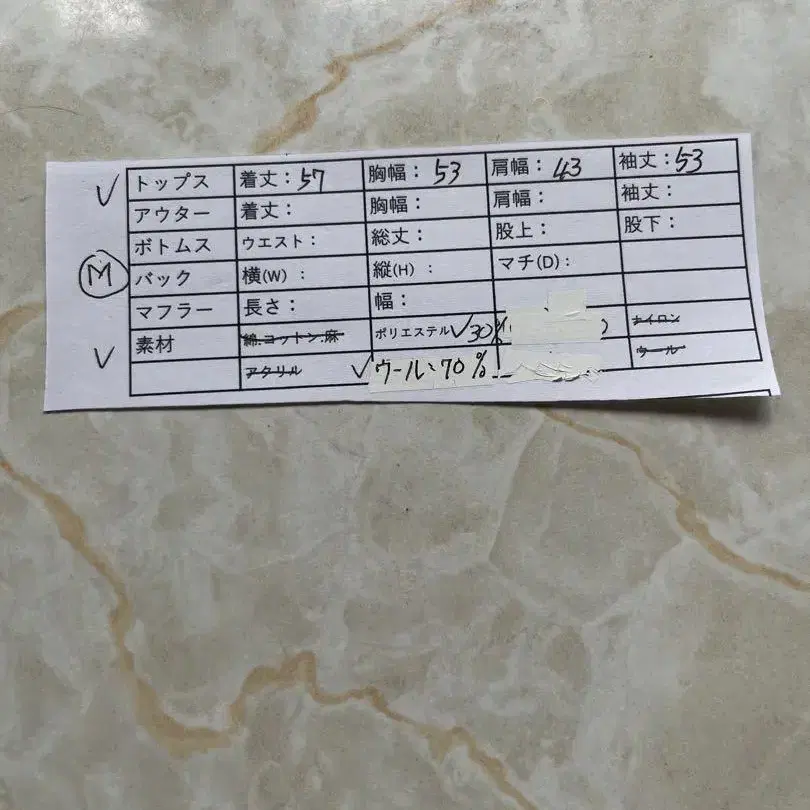 ✓ トップス 着丈：57 胸幅：53 肩幅：43 袖丈：53
アウター 着丈： 胸幅： 肩幅： 袖丈：
ボトムス ウエスト： 総丈： 股上： 股下：
Ⓜ バック 横(W)： 縦(H)： マチ(D)：
マフラー 長さ： 幅：
✓ 素材 綿.コットン.麻 ポリエステル ✓30% ナイロン
アクリル ✓ウール:70% ウール